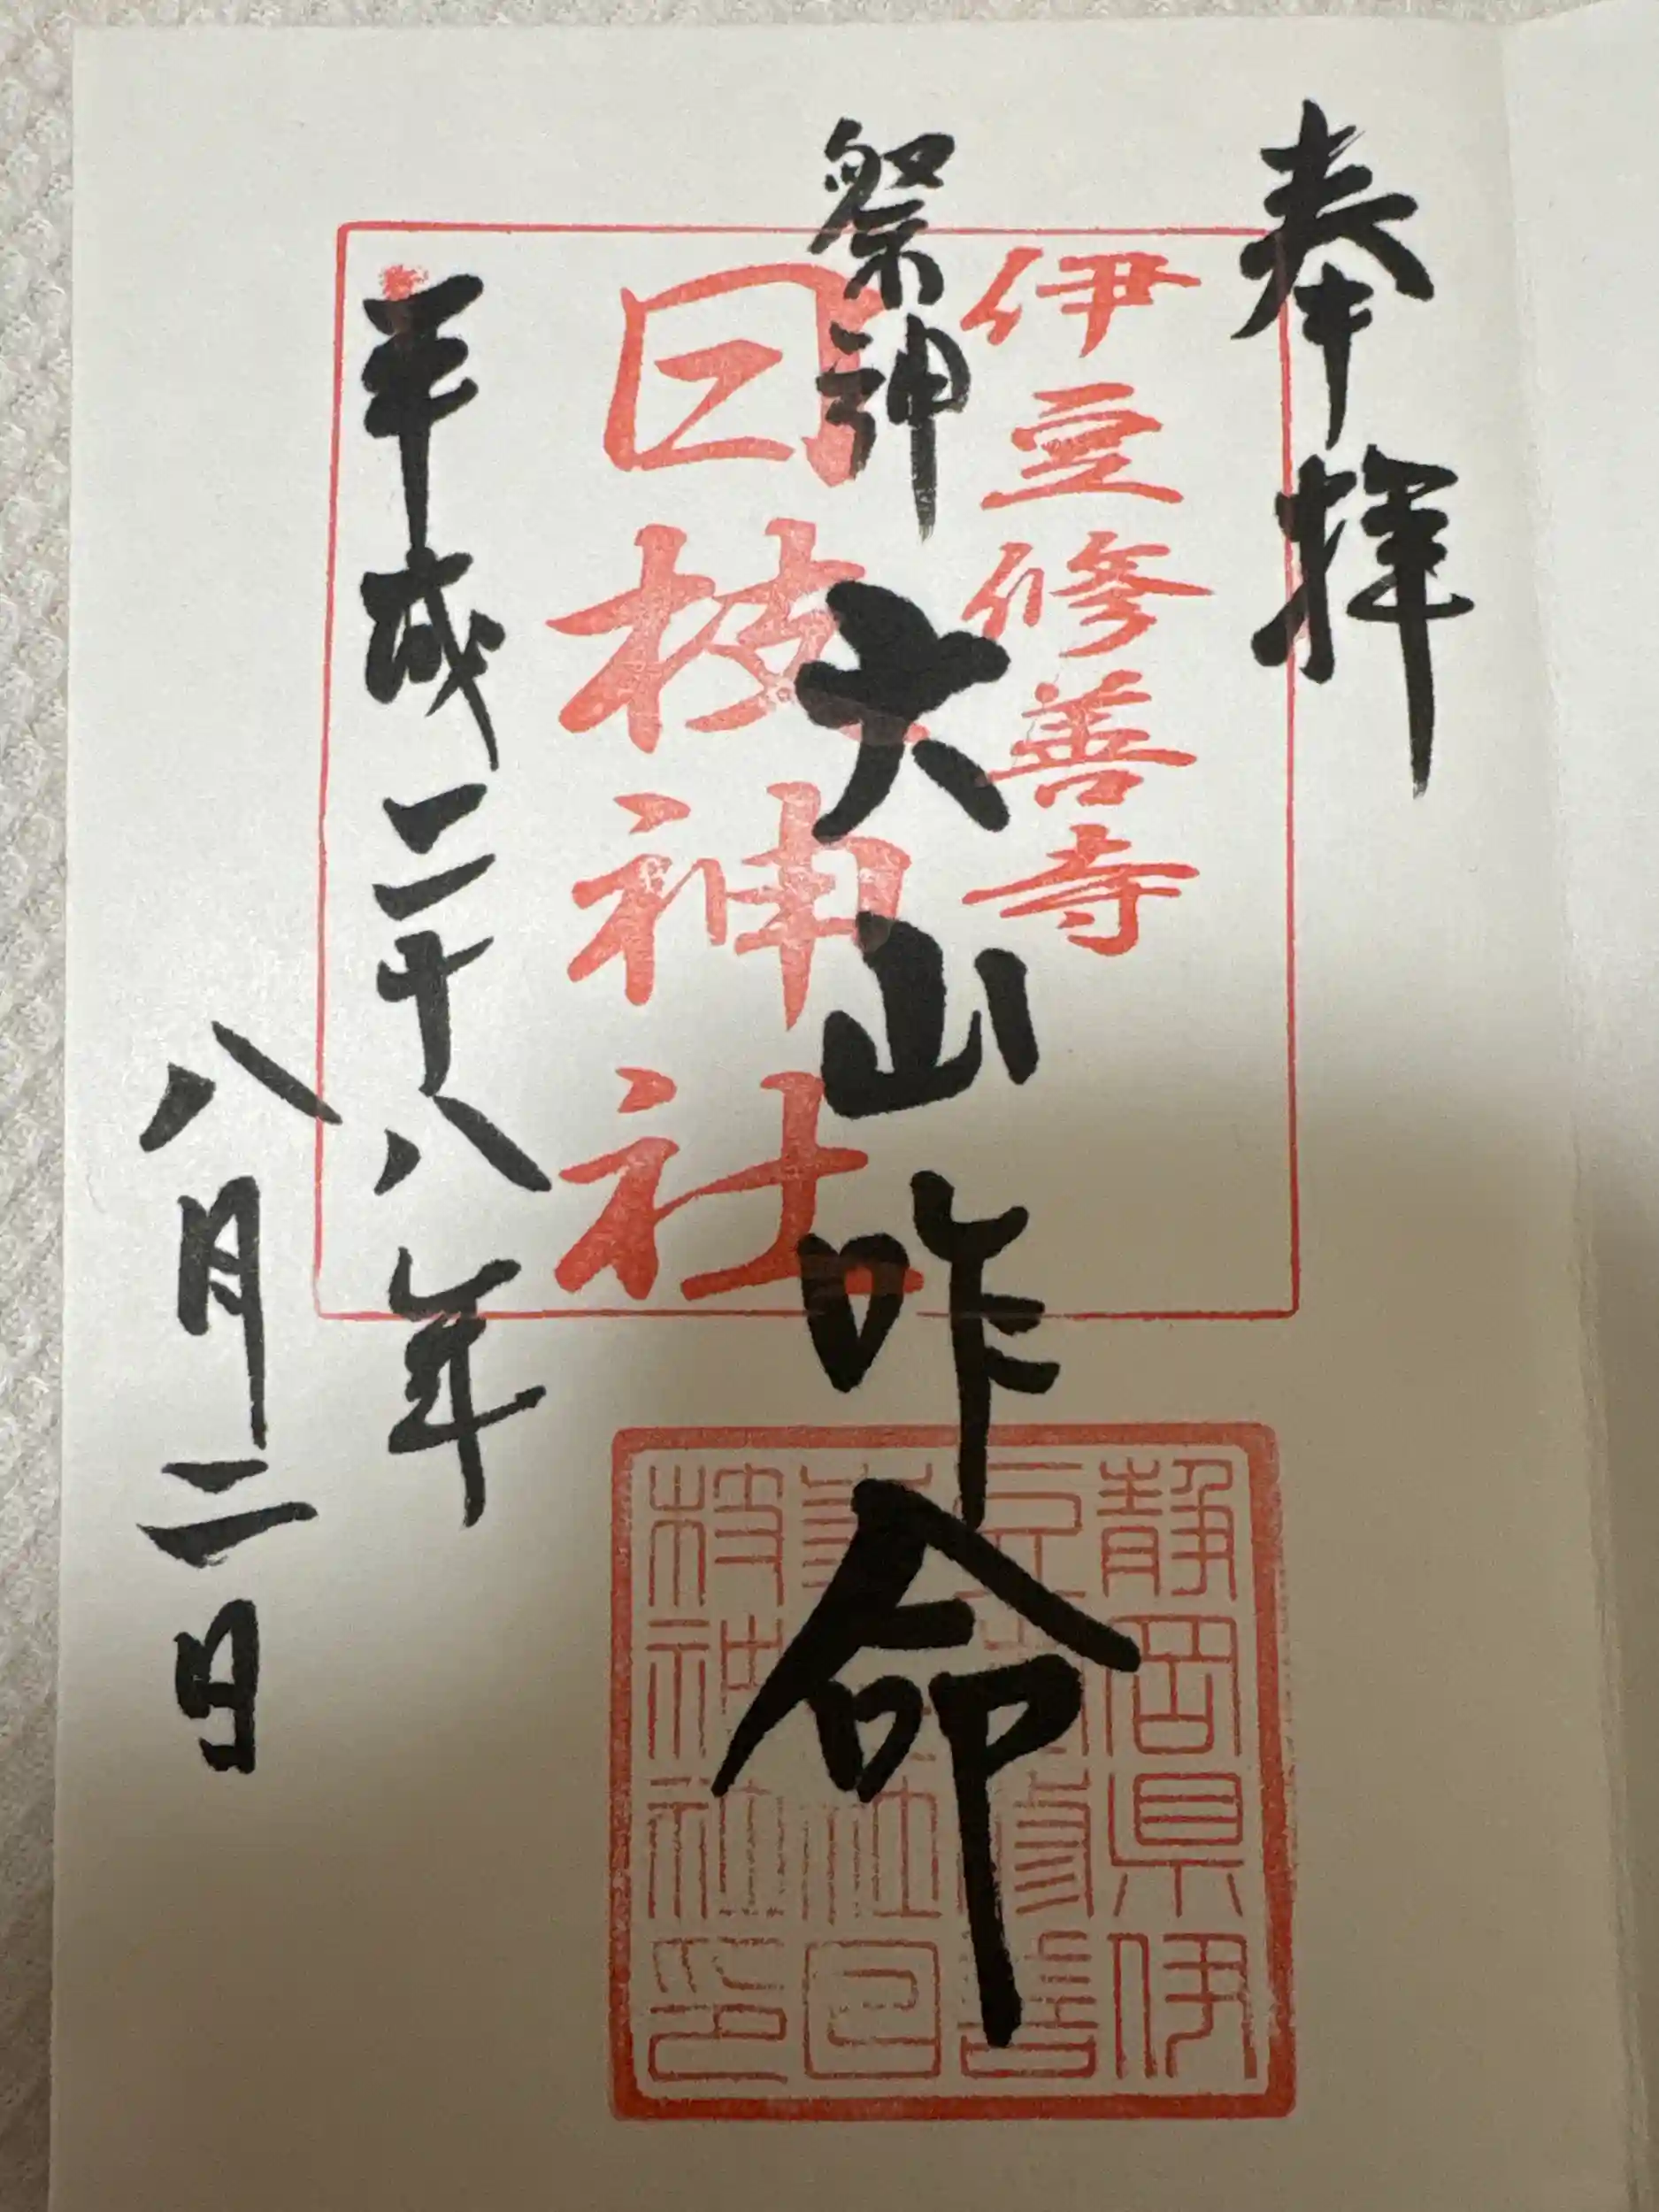 奉拝
伊豆修善寺
祭神 大山咋命
日枝神社
平成二十八年
八月二日
静岡県伊
枝神社印